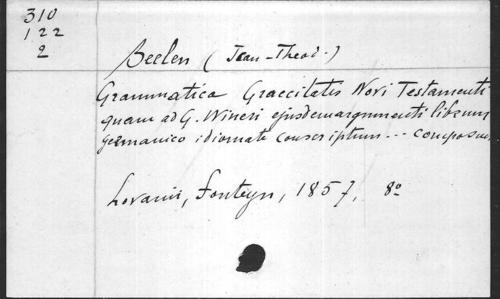 310
122
2
Beelen (Jean-Theod.)
Grammatica Graecitatis Novi Testamenti
quam ad G. Wineri ejusdem argumenti librum
germanico idiomate conscriptum... composuit
Lovanii, Fonteyn, 1857, 8º